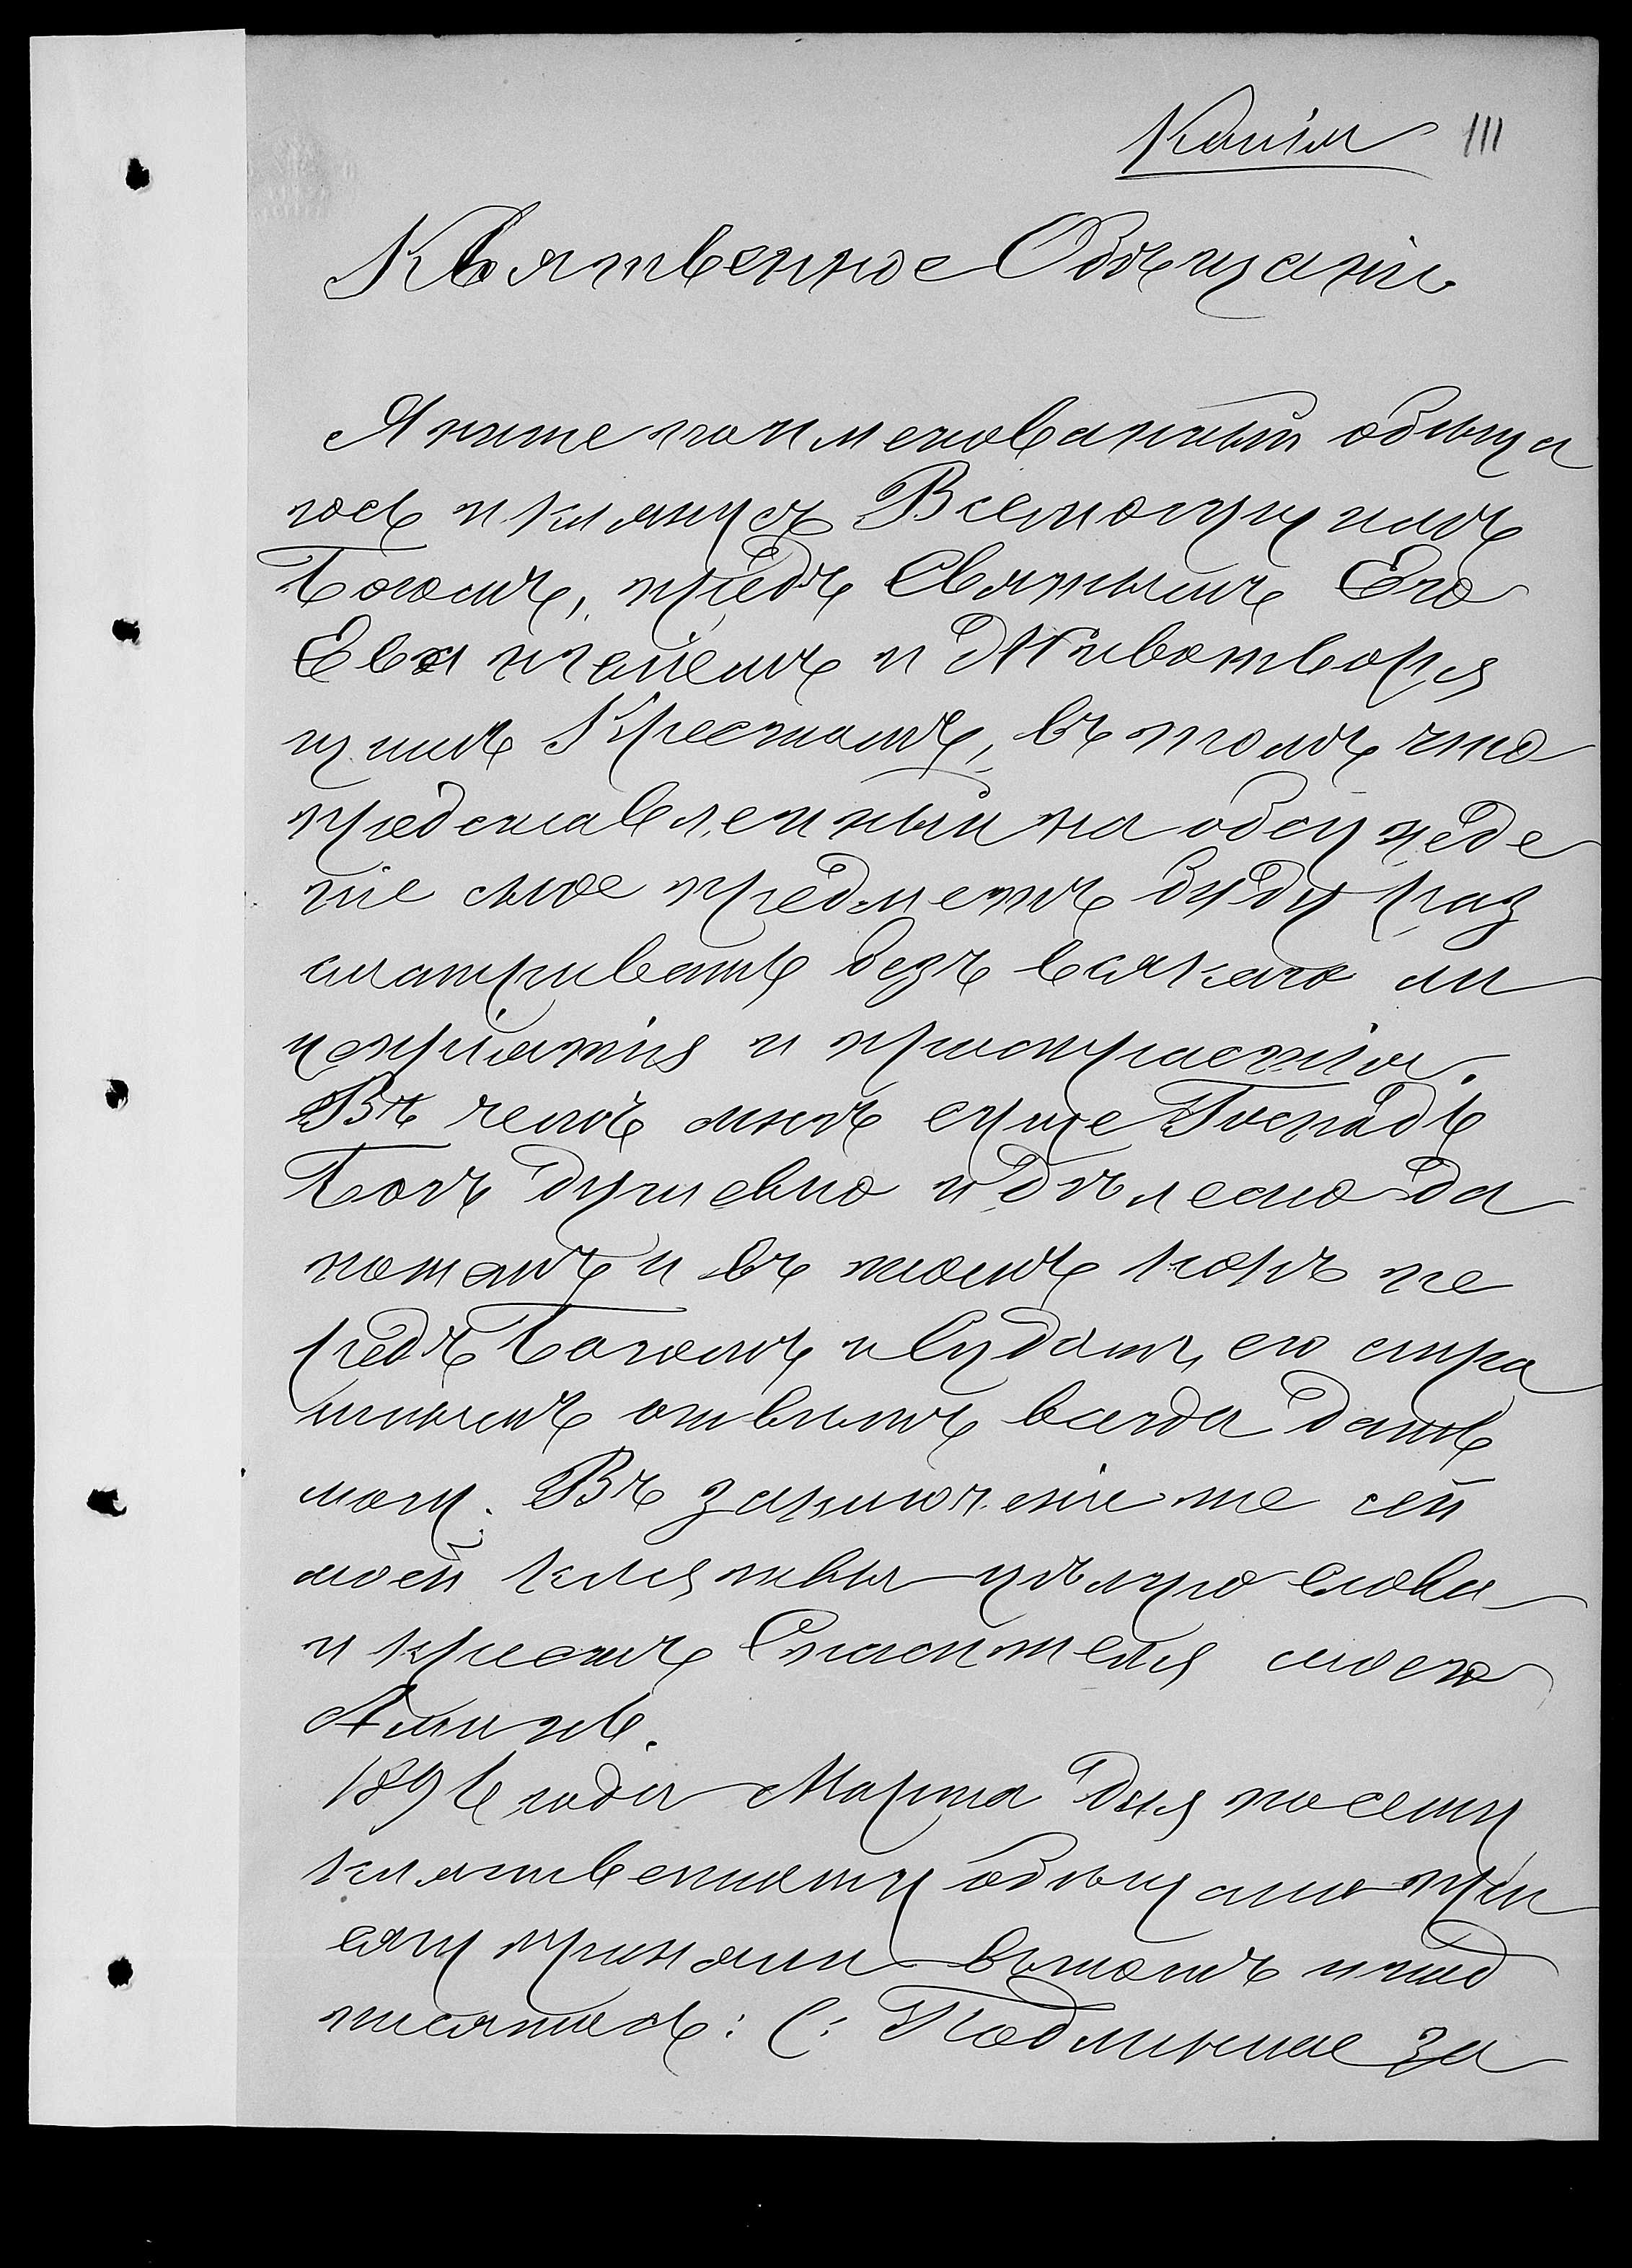 Копія 111
Клятвенное Обѣщаніе
Я ниже поименованный обѣща
юсь и клянусь Всемогущимъ
Богомъ, предъ Святымъ Его
Евангеліемъ и Животворя
щимъ Крестомъ, въ томъ что
представленный на обсужде
ніе мое предметъ буду раз
сматривать безъ всякаго ли
цепріятія и пристрастія.
Въ чемъ мнѣ сущее Господь
Богъ душевно и тѣлесно да
поможетъ и въ томъ какъ пе
редъ Богомъ и Судомъ его стра
шнымъ отвѣтъ всегда дать
могу. Въ заключеніе же сей
моей клятвы цѣлую слова
и крестъ Спасителя моего
Аминь.
1896 года Марта дня по сему
клятвенному обѣщанію при
сягу приняли въ томъ и под
писались: (: Подлинное за